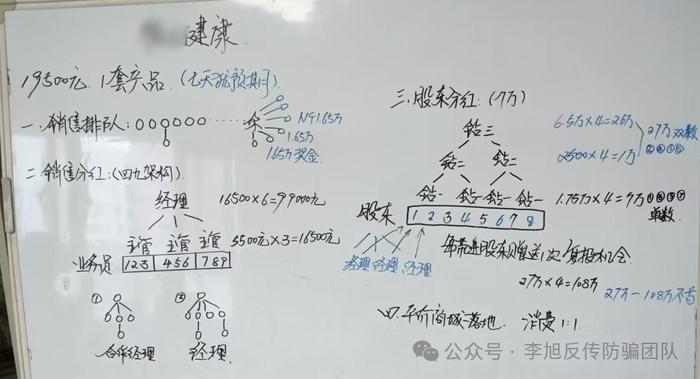 健康.
19500元. 1套产品. (七天犹预期)
一. 销售排队: 
N个1.65万
1.65万
1.65万奖金.
二. 销售分红: (四九架构)
经理
16500×6=99000元
主管 主管 主管
5500元×3=16500元
业务员 123 456 789
① ②
合作经理 经理.
三. 股东分红: (7万)
钻三
6.5万×4=26万
27万 双数
钻二 钻二
2500×4=1万
②④⑥⑧
钻一 钻一 钻一 钻一
1.75万×4=7万 ①③⑤⑦
单数.
股东 1 2 3 4 5 6 7 8
经理 经理 经理
每带进股东赠送1次复投机会
27万×4=108万
27万-108万不等
四. 平价商城落地. 消费1:1.
公众号·李旭反传防骗团队